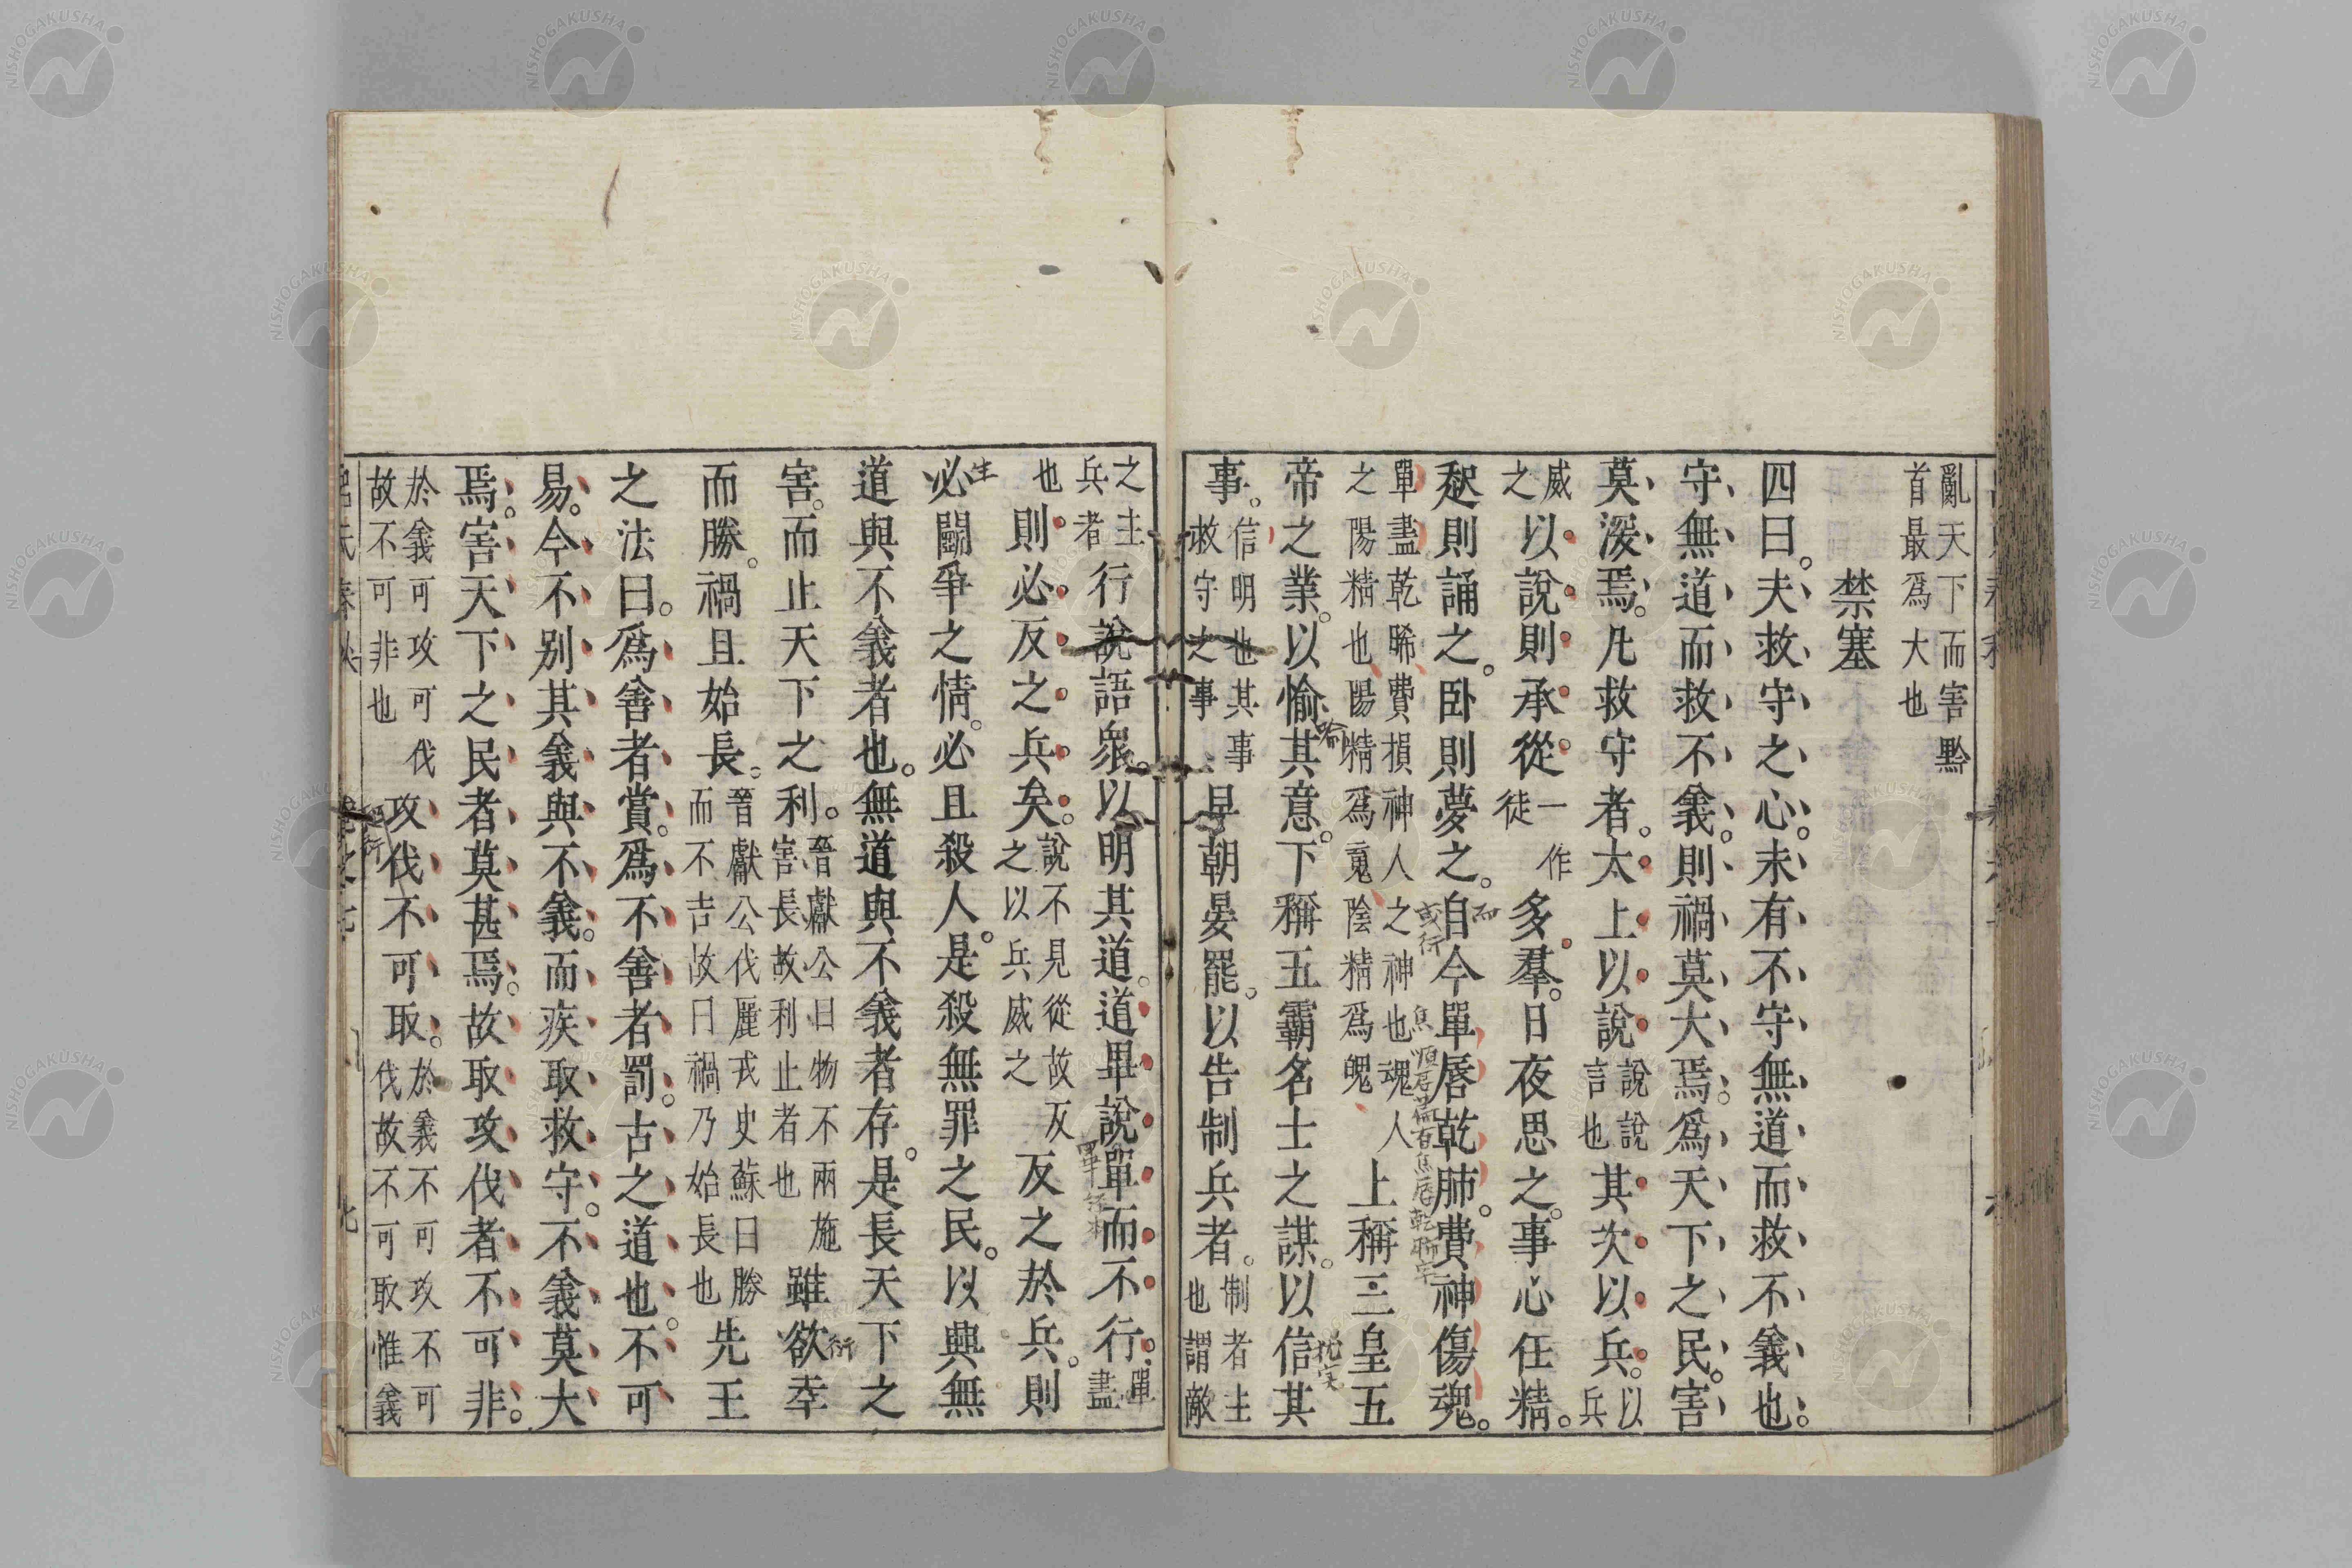 亂天下而害黔
首最爲大也
禁塞
四曰。夫救守之心。未有不守無道而救不義也。
守無道而救不義。則禍莫大焉。爲天下之民害
莫深焉。凡救守者。太上以說說說言也其次以兵。以兵
威之以說則承從。一作徒多羣。日夜思之。事心任精。
起則誦之。臥則夢之。自今單唇乾肺。費神傷魂。
單盡乾晞費損神人之神也魂人
之陽精也陽精爲䰟陰精爲魄上稱三皇五
帝之業。以愉其意。下稱五霸名士之謀。以信其
事。信明也其事救守之事早朝晏罷。以告制兵者。制者主也謂敵
之主兵者行說語衆。以明其道。道畢說單而不行。單盡
也則必反之兵矣。說不見從故反之以兵威之反之於兵。則
必鬭爭之情。必且殺人。是殺無罪之民。以興無
道與不義者也。無道與不義者存。是長天下之
害。而止天下之利。晉獻公曰物不兩施害長故利止者也雖欲幸
而勝。禍且始長。晉獻公伐麗戎史蘇曰勝而不吉故曰禍乃始長也先王
之法曰。爲善者賞。爲不善者罰。古之道也。不可
易。今不別其義與不義。而疾取救守。不義莫大
焉。害天下之民者莫甚焉。故取攻伐者不可非。
於義可攻可伐故不可非也攻伐不可取。於義不可攻不可伐故不可取惟義